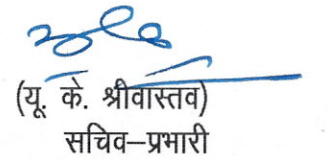 (यू. के. श्रीवास्तव)
सचिव–प्रभारी